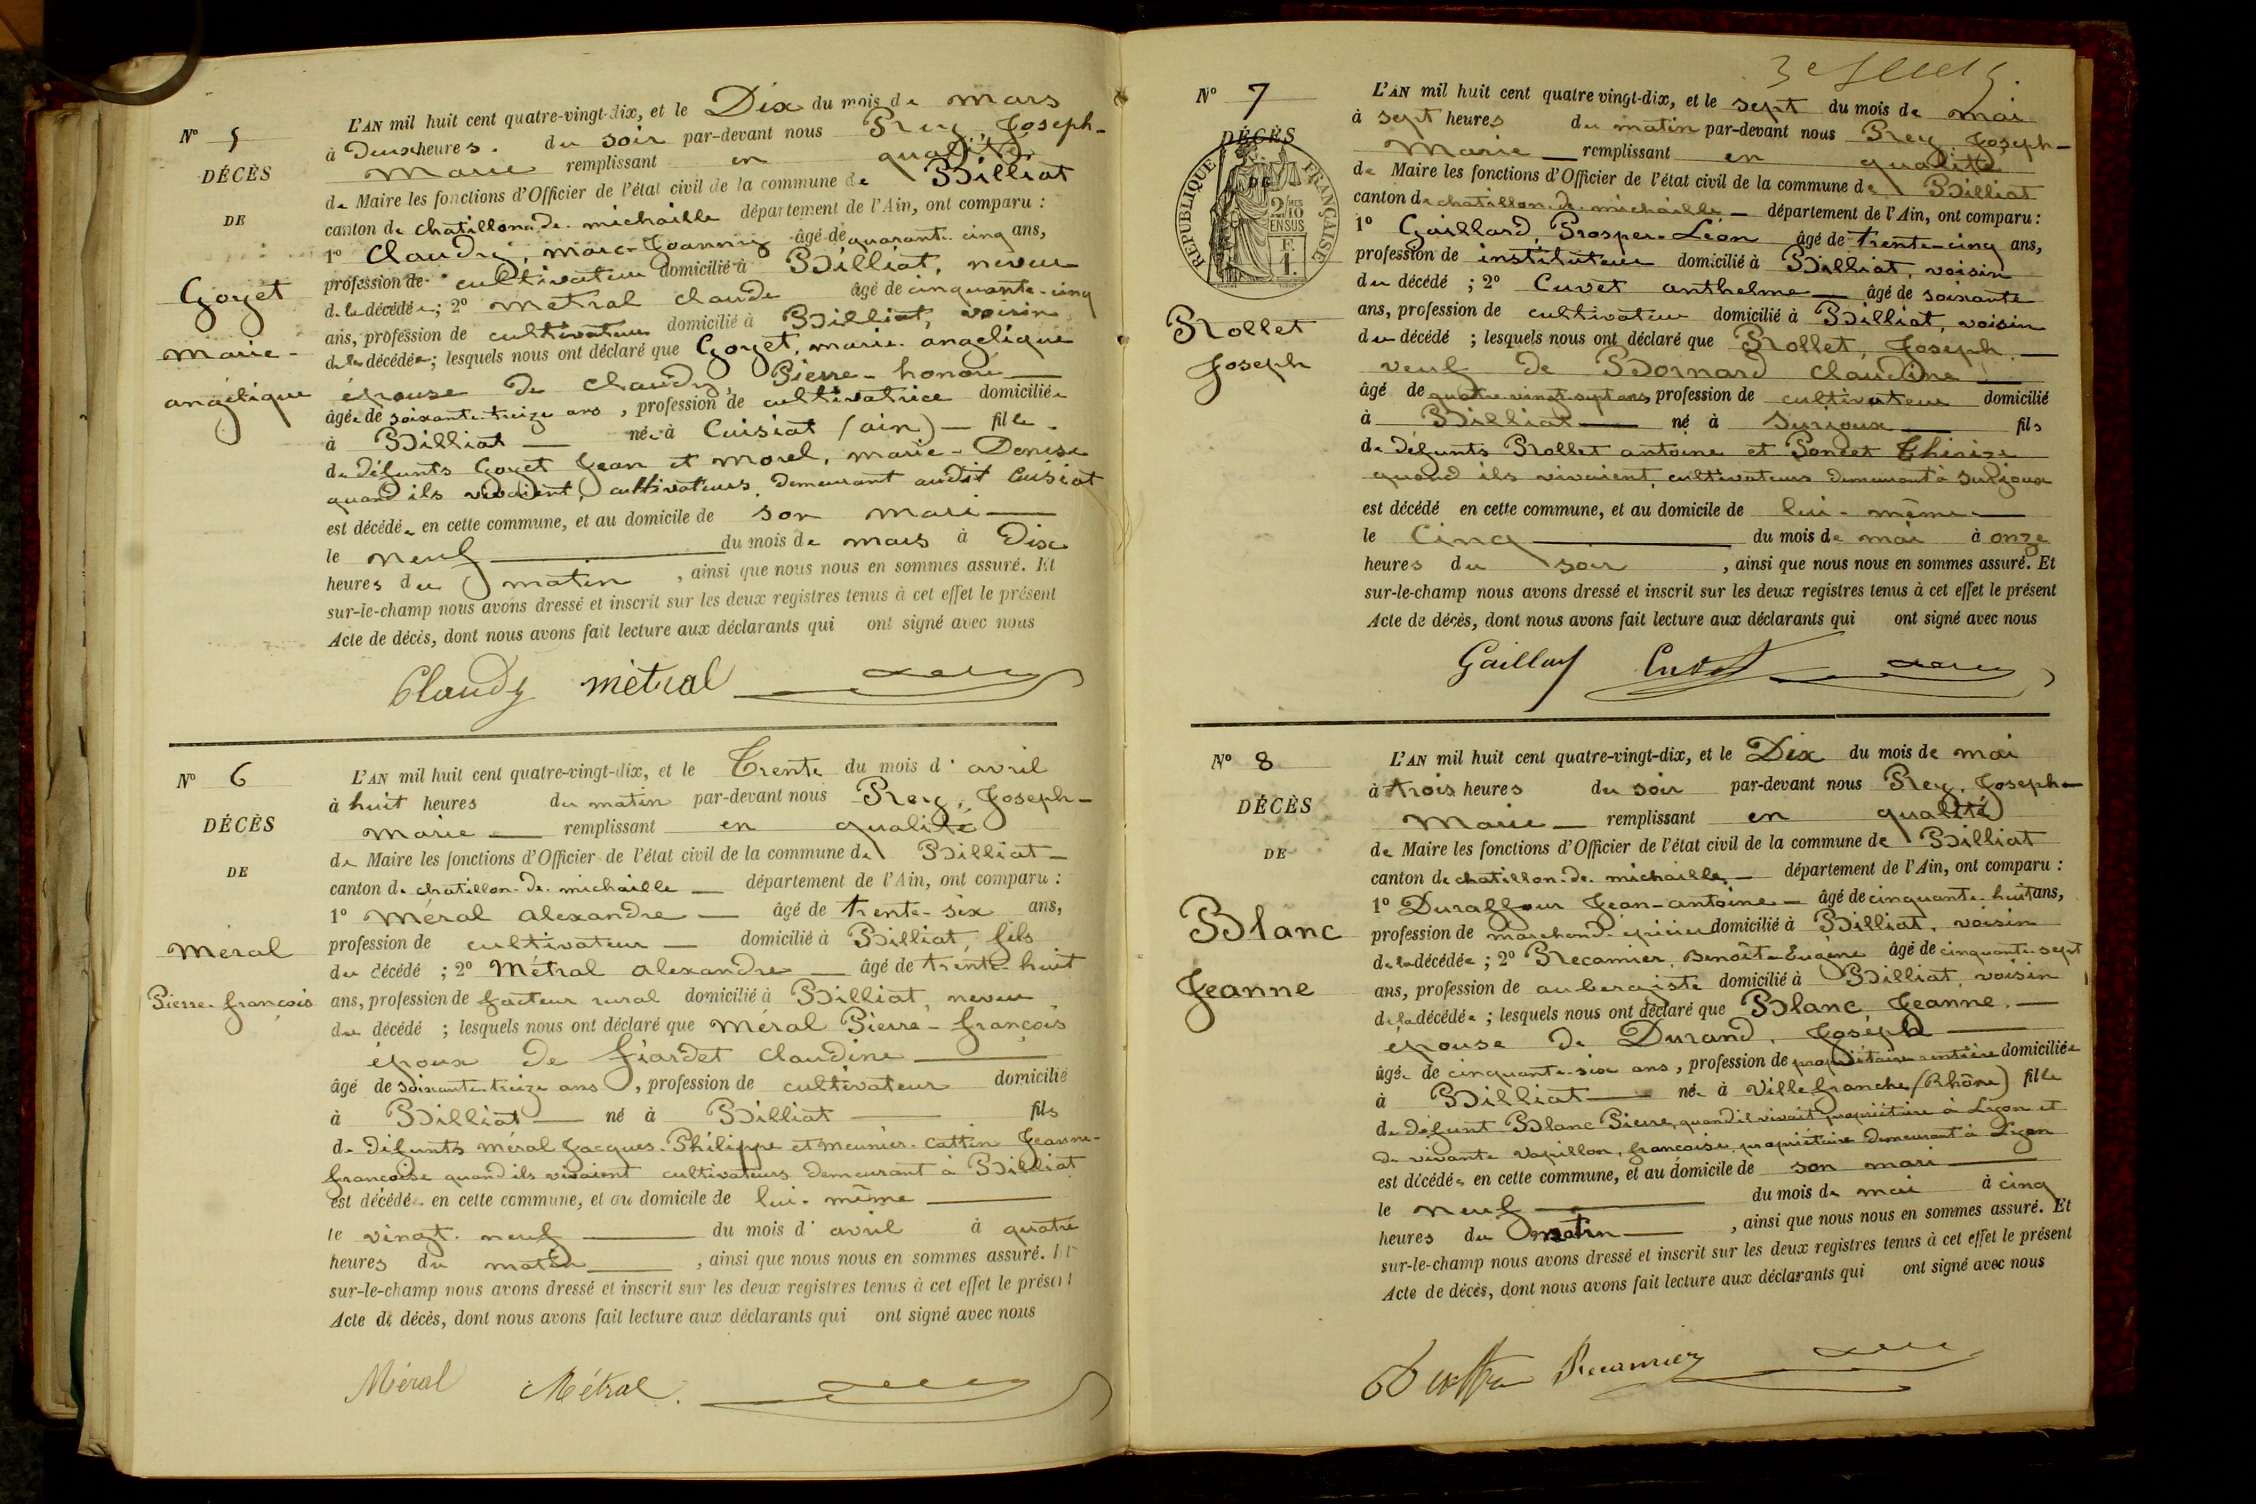 N° 5
DÉCÈS
DE
Goyet
marie-
angélique
L'AN mil huit cent quatre-vingt-dix, et le Dix du mois de mars
à Deux heures. du soir par-devant nous Rey, Joseph-
Marie remplissant en qualité
de Maire les fonctions d'Officier de l'état civil de la commune de Billiat
canton de chatillon de michaille département de l'Ain, ont comparu :
1° Claudy, marc-Joanny âgé de quarante cinq ans,
profession de cultivateur domicilié à Billiat, neveu
de la décédée ; 2° métral claude âgé de cinquante-cinq
ans, profession de cultivateur domicilié à Billiat, voisin
de la décédée ; lesquels nous ont déclaré que Goyet, marie angélique
épouse de claudy, Pierre-honoré
âgée de soixante-treize ans, profession de cultivatrice domiciliée
à Billiat née à Cuisiat (ain) fille
de défunts Goyet Jean et morel, marie-Denise
quand ils vivaient, cultivateurs, demeurant audit Cuisiat
est décédée en cette commune, et au domicile de son mari
le neuf du mois de mars à Dix
heures du matin, ainsi que nous nous en sommes assuré. Et
sur-le-champ nous avons dressé et inscrit sur les deux registres tenus à cet effet le présent
Acte de décès, dont nous avons fait lecture aux déclarants qui ont signé avec nous
Claudy métral
N° 6
DÉCÈS
DE
Méral
Pierre-françois
L'AN mil huit cent quatre-vingt-dix, et le Trente du mois d'avril
à huit heures du matin par-devant nous Rey, Joseph-
Marie remplissant en qualité
de Maire les fonctions d'Officier de l'état civil de la commune de Billiat
canton de chatillon-de-michaille département de l'Ain, ont comparu :
1° Méral alexandre âgé de trente-six ans,
profession de cultivateur domicilié à Billiat, fils
du décédé ; 2° Métral alexandre âgé de trente-huit
ans, profession de facteur rural domicilié à Billiat, neveu
du décédé ; lesquels nous ont déclaré que Méral Pierre-françois
époux de fiardet claudine
âgé de soixante-treize ans, profession de cultivateur domicilié
à Billiat né à Billiat fils
de Défunts méral Jacques-Philippe et meunier-cattin Jeanne-
françoise quand ils vivaient cultivateurs demeurant à Billiat
est décédé en cette commune, et au domicile de lui-même
le vingt-neuf du mois d'avril à quatre
heures du matin, ainsi que nous nous en sommes assuré. Et
sur-le-champ nous avons dressé et inscrit sur les deux registres tenus à cet effet le présent
Acte de décès, dont nous avons fait lecture aux déclarants qui ont signé avec nous
Méral Métral
N° 7
DÉCÈS
DE
REPUBLIQUE FRANÇAISE
2 10
EN SUS
F.
1.
Rollet
Joseph
L'AN mil huit cent quatre vingt-dix, et le sept du mois de mai
à sept heures du matin par-devant nous Rey, Joseph-
Marie remplissant en qualité
de Maire les fonctions d'Officier de l'état civil de la commune de Billiat
canton de chatillon-de-michaille département de l'Ain, ont comparu :
1° Gaillard, Prosper-Léon âgé de trente-cinq ans,
profession de instituteur domicilié à Billiat, voisin
du décédé ; 2° Cuvet anthelme âgé de soixante
ans, profession de cultivateur domicilié à Billiat, voisin
du décédé ; lesquels nous ont déclaré que Rollet, Joseph,
veuf de Bornard claudine
âgé de quatre-vingt-sept ans profession de cultivateur domicilié
à Billiat né à Surjoux fils
de défunts Rollet antoine et Poncet
quand ils vivaient, cultivateurs demeurant à Surjoux
est décédé en cette commune, et au domicile de lui-même
le Cinq du mois de mai à onze
heures du soir, ainsi que nous nous en sommes assuré. Et
sur-le-champ nous avons dressé et inscrit sur les deux registres tenus à cet effet le présent
Acte de décès, dont nous avons fait lecture aux déclarants qui ont signé avec nous
Gaillard Cuvet
N° 8
DÉCÈS
DE
Blanc
Jeanne
L'AN mil huit cent quatre-vingt-dix, et le Dix du mois de mai
à trois heures du soir par-devant nous Rey, Joseph-
Marie remplissant en qualité
de Maire les fonctions d'Officier de l'état civil de la commune de Billiat
canton de chatillon-de-michaille département de l'Ain, ont comparu :
1° Duraffour Jean-antoine âgé de cinquante-huit ans,
profession de marchand-épicier domicilié à Billiat, voisin
de la décédée ; 2° Recamier, Benoît-Eugène âgé de cinquante-sept
ans, profession de aubergiste domicilié à Billiat, voisin
de la décédée ; lesquels nous ont déclaré que Blanc Jeanne,
épouse de Durand, Joseph
âgée de cinquante-six ans, profession de propriétaire rentière domiciliée
à Billiat née à Villefranche (Rhône) fille
de défunt Blanc Pierre, quand il vivait propriétaire à Lyon et
de vivante Vapillon, françoise, propriétaire demeurant à Lyon
est décédée en cette commune, et au domicile de son mari
le neuf du mois de mai à cinq
heures du matin, ainsi que nous nous en sommes assuré. Et
sur-le-champ nous avons dressé et inscrit sur les deux registres tenus à cet effet le présent
Acte de décès, dont nous avons fait lecture aux déclarants qui ont signé avec nous
Recamier